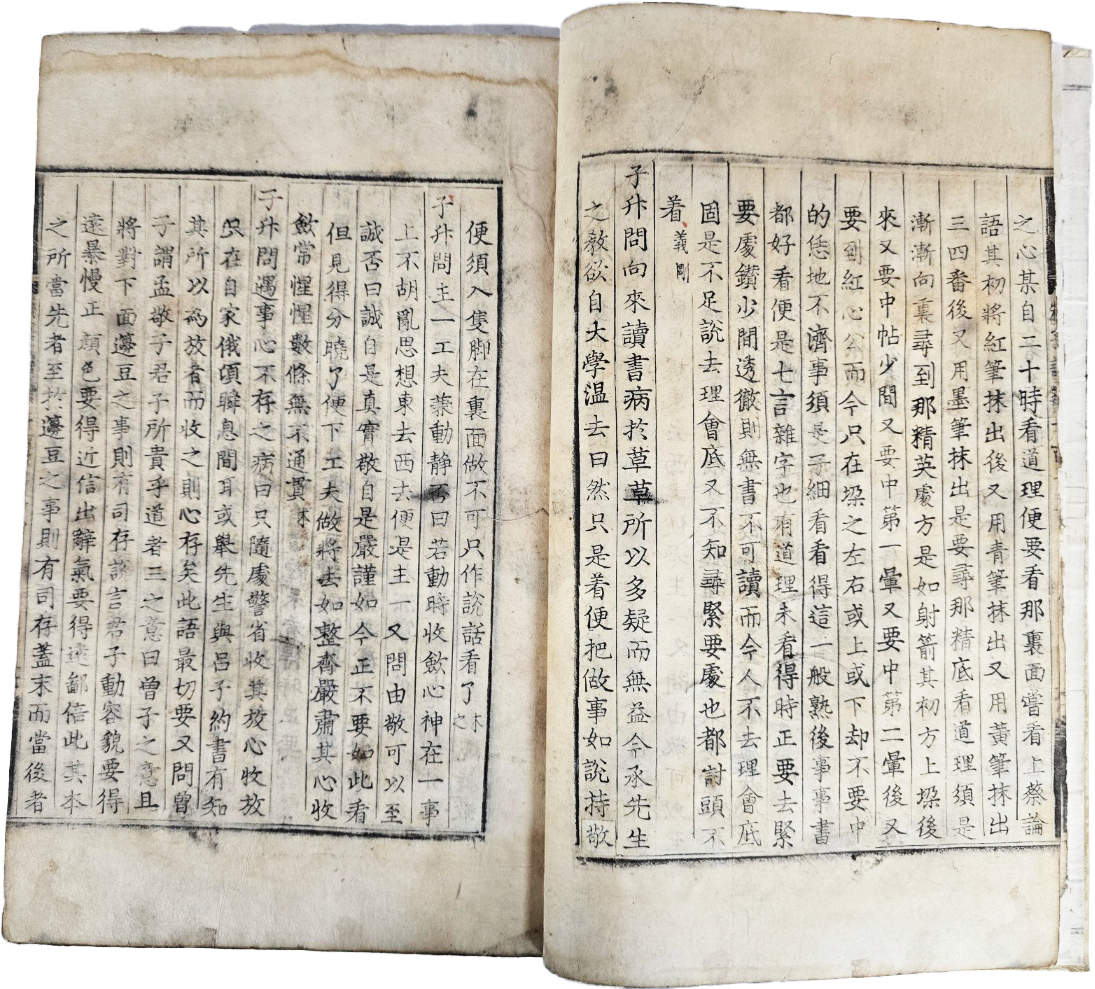 之心某自二十時看道理便要看那裏面嘗看上蔡論
語其初將紅筆抹出後又用青筆抹出又用黃筆抹出
三四番後又用墨筆抹出是要尋那精底看道理須是
漸漸向裏尋到那精英處方是如射箭其初方上垛後
來又要中帖少間又要中第一暈又要中第二暈後又
要到紅心公而今只在垛之左右或上或下却不要中
的恁地不濟事須是子細看看得這一般熟後事事書
都好看便是七言雜字也有道理未看得時正要去緊
要處鑽少間透徹則無書不可讀而今人不去理會底
固是不足說去理會底又不知尋緊要處也都討頭不
着義剛
子升問向來讀書病於草草所以多疑而無益今承先生
之敎欲自大學温去曰然只是着便把做事如說持敬
便須入隻脚在裏面做不可只作說話看了木之
子升問主一工夫兼動靜否曰若動時收斂心神在一事
上不胡亂思想東去西去便是主一又問由敬可以至
誠否曰誠自是真實敬自是嚴謹如今正不要如此看
但見得分曉了便下工夫做將去如整齊嚴肅其心收
斂常惺惺數條無不通貫木
子升問遇事心不存之病曰只隨處警省收其放心收放
只在自家俄頃瞬息間耳或舉先生與呂子約書有知
其所以為放者而收之則心存矣此語最切要又問曾
子謂孟敬子君子所貴乎道者三之意曰曾子之意且
將對下面籩豆之事則有司存說言君子動容貌要得
遠暴慢正顔色要得近信出辭氣要得遠鄙倍此其本
之所當先者至於籩豆之事則有司存蓋末而當後者